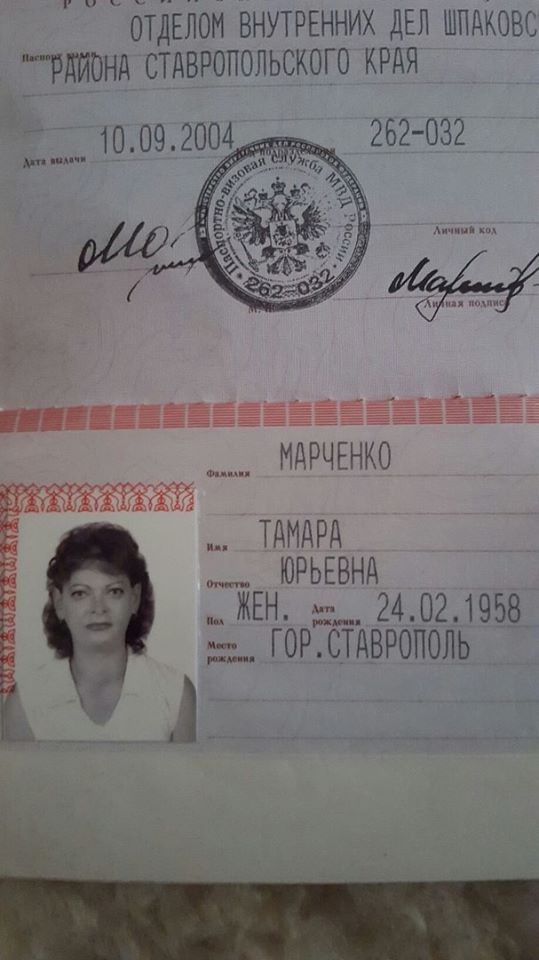 ОТДЕЛОМ ВНУТРЕННИХ ДЕЛ
Паспорт выдан
РАЙОНА СТАВРОПОЛЬСКОГО КРАЯ
10.09.2004 262-032
Дата выдачи
Паспортно-визовая служба МВД России
262-032
Личный код
М. П.
Личная подпись
МАРЧЕНКО
Фамилия
ТАМАРА
Имя
ЮРЬЕВНА
Отчество
Пол ЖЕН. Дата рождения 24.02.1958
Место рождения ГОР.СТАВРОПОЛЬ